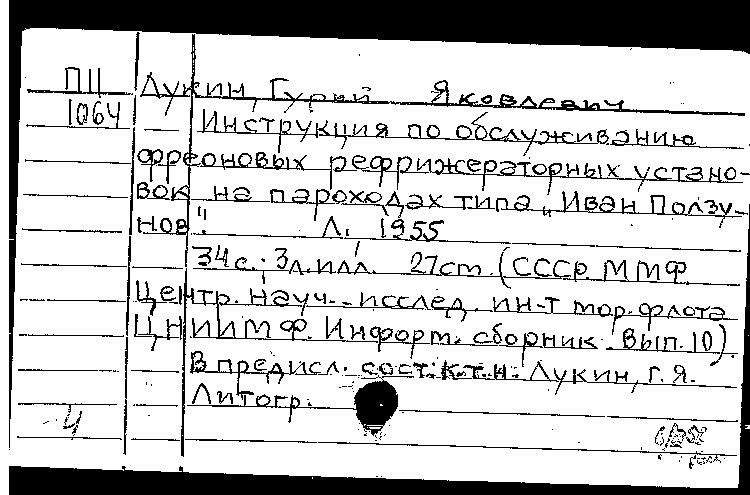 ПЦ Лукин, Гурий Яковлевич
1064 Инструкция по обслуживанию
фреоновых рефрижераторных устано-
вок на пароходах типа „Иван Ползу-
нов". Л., 1955
34 с.; 3 л. илл. 27 cm. (СССР ММФ
Центр. науч.-исслед. ин-т мор. флота
ЦНИИМФ. Информ. сборник. Вып. 10).
В предисл. сост.: к.т.н. Лукин, Г.Я.
Литогр.
4